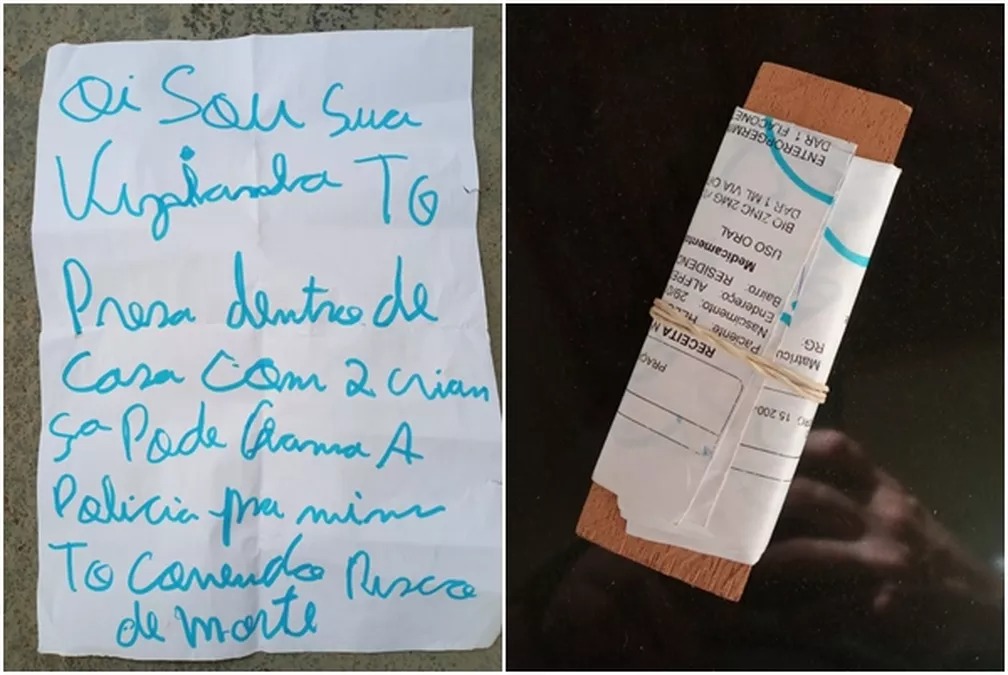 Oi Sou Sua
Vizianha TO
Presa dentro de
Casa Com 2 crian
ça Pode Chama A
Policia pra mim
To Correndo Risco
de morte
RECEITA
Paciente
Nascimento: 29/0
Endereço: ALFRE
Bairro: RESIDENC
Medicamento
USO ORAL
BIO ZINC 2MG
DAR 1 ML VIA
ENTEROGERMI
DAR 1 FLACONE
Matricu
RG:
15.200-